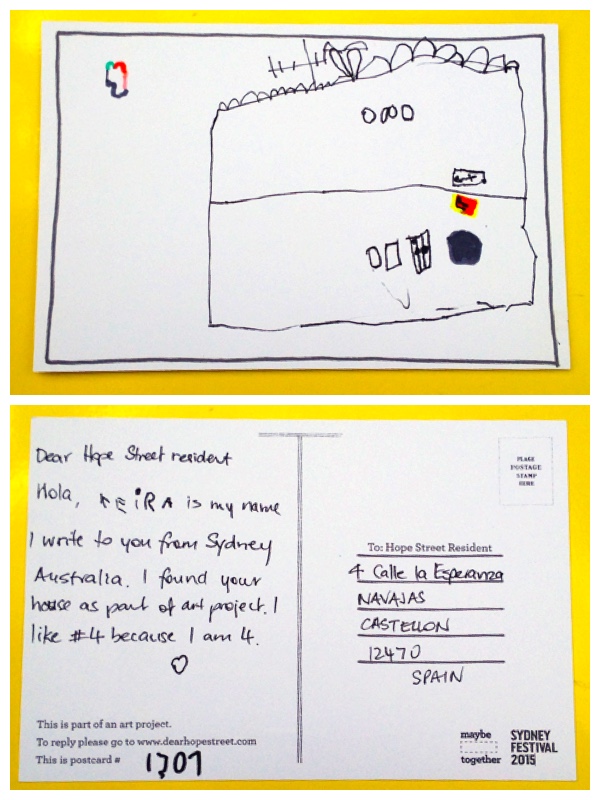 Dear Hope Street resident
Hola, KEiRA is my name
I write to you from Sydney
Australia. I found your
house as part of art project. I
like #4 because I am 4.
This is part of an art project.
To reply please go to www.dearhopestreet.com
This is postcard # 1301
PLACE
POSTAGE
STAMP
HERE
To: Hope Street Resident
4 Calle la Esperanza
NAVAJAS
CASTELLON
12470
SPAIN
maybe
together
SYDNEY
FESTIVAL
2015